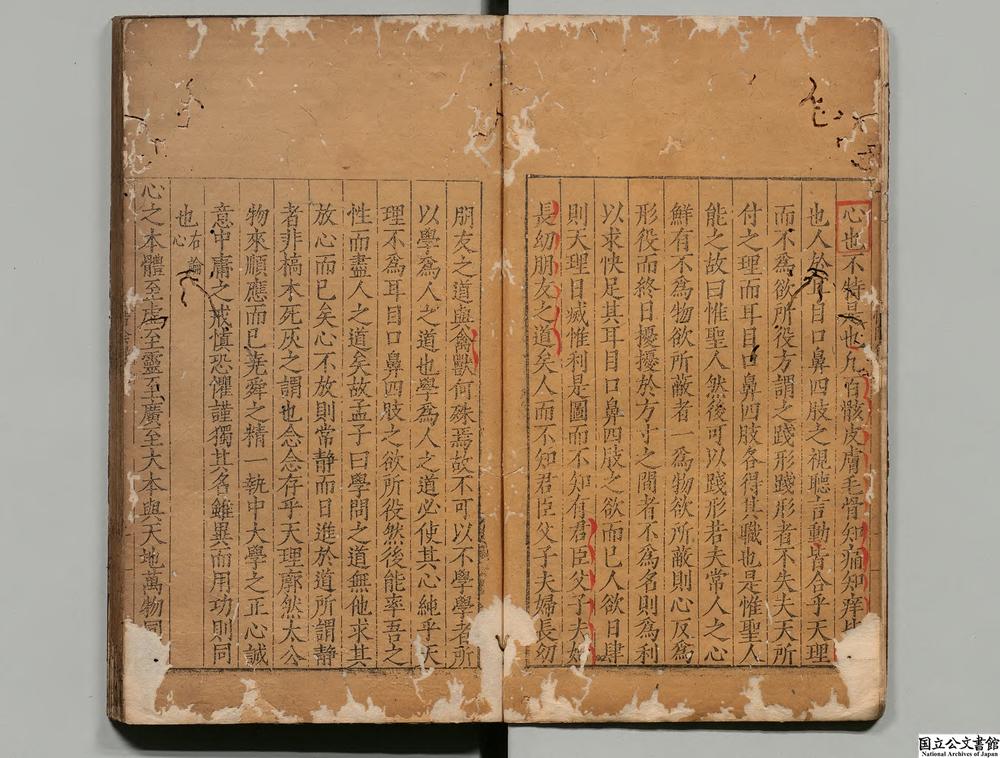 心也不特是也凡百骸皮膚毛骨知痛知痒
也人於耳目口鼻四肢之視聽言動皆合乎天理
而不爲欲所役方謂之踐形踐形者不失夫天所
付之理而耳目口鼻四肢各得其職也是惟聖人
能之故曰惟聖人然後可以踐形若夫常人之心
鮮有不爲物欲所蔽者一爲物欲所蔽則心反爲
形役而終日擾擾於方寸之間者不爲名則爲利
以求快足其耳目口鼻四肢之欲而已人欲日肆
則天理日滅惟利是圖而不知有君臣父子夫婦
長幼朋友之道矣人而不知君臣父子夫婦長幼
朋友之道與禽獸何殊焉故不可以不學學者所
以學爲人之道也學爲人之道必使其心純乎天
理不爲耳目口鼻四肢之欲所役然後能率吾之
性而盡人之道矣故孟子曰學問之道無他求其
放心而已矣心不放則常靜而日進於道所謂靜
者非槁木死灰之謂也念念存乎天理廓然太公
物來順應而已堯舜之精一執中大學之正心誠
意中庸之戒慎恐懼謹獨其名雖異而用功則同
也 右論心
心之本體至虛至靈至廣至大本與天地萬物同
国立公文書館
National Archives of Japan